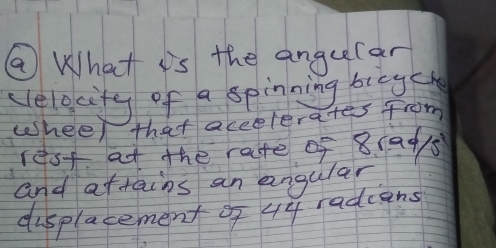 (a) What is the angular
velocity of a spinning bicycle
wheel that accelerates from
rest at the rate of 8 rad/s²
and attains an angular
displacement of 44 radians